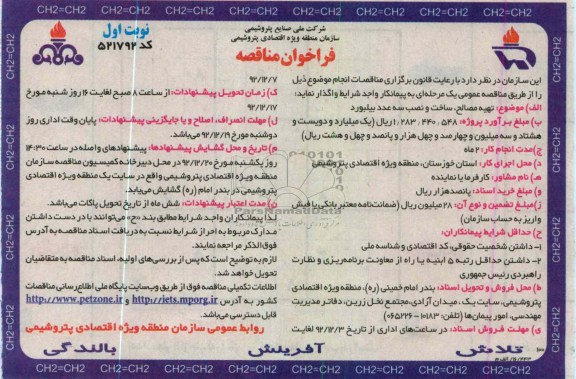 شرکت ملی صنایع پتروشیمی
سازمان منطقه ویژه اقتصادی پتروشیمی
فراخوان مناقصه
نوبت اول
کد ۵۲۱۷۹۲
این سازمان در نظر دارد با رعایت قانون برگزاری مناقصات انجام موضوع ذیل
را از طریق مناقصه عمومی یک مرحله‌ای به پیمانکار واجد شرایط واگذار نماید:
الف) موضوع: تهیه مصالح، ساخت و نصب سه عدد بیلبورد
ب) مبلغ برآورد پروژه: ۱،۲۸۳،۰۴۴،۵۴۸ ریال (یک میلیارد و دویست و
هشتاد و سه میلیون و چهل و چهار هزار و پانصد و چهل و هشت ریال)
ج) مدت انجام کار: ۲ ماه
د) محل اجرای کار: استان خوزستان، منطقه ویژه اقتصادی پتروشیمی
ه) نام مشاور: کارفرما یا نماینده
و) مبلغ خرید اسناد: پانصد هزار ریال
ز) مبلغ تضمین و نوع آن: ۲۸ میلیون ریال (ضمانت‌نامه معتبر بانکی یا فیش
واریز به حساب سازمان)
ح) حداقل شرایط پیمانکاران:
۱- داشتن شخصیت حقوقی، کد اقتصادی و شناسه ملی
۲- داشتن حداقل رتبه ۵ ابنیه یا راه از معاونت برنامه‌ریزی و نظارت
راهبردی رئیس جمهوری
ط) محل فروش و تحویل اسناد: بندر امام خمینی (ره)، منطقه ویژه اقتصادی
پتروشیمی، سایت یک، میدان آزادی، مجتمع نخل زرین، دفاتر مدیریت
مهندسی، امور پیمان‌ها (تلفن: ۱۰۱۸۳-۰۶۵۲۲۶)
ی) مهلت فروش اسناد: در ساعت‌های اداری از تاریخ ۹۲/۱۲/۳ لغایت
۹۲/۱۲/۷
ک) زمان تحویل پیشنهادات: از ساعت ۸ صبح لغایت ۱۶ روز شنبه مورخ
۹۲/۱۲/۱۷
ل) مهلت انصراف، اصلاح و یا جایگزینی پیشنهادات: پایان وقت اداری روز
دوشنبه مورخ ۹۲/۱۲/۱۹ می‌باشد.
م) تاریخ و محل گشایش پیشنهادها: پیشنهادهای واصله در ساعت ۱۴:۳۰
روز یکشنبه مورخ ۹۲/۱۲/۲۰ در محل دبیرخانه کمیسیون مناقصه سازمان
منطقه ویژه اقتصادی پتروشیمی واقع در سایت یک منطقه ویژه اقتصادی
پتروشیمی در بندر امام (ره) گشایش می‌یابد.
ن) مدت اعتبار پیشنهادات: شش ماه از تاریخ تحویل پاکات می‌باشد.
لذا پیمانکاران واجد شرایط مطابق بند «ح» می‌توانند با در دست داشتن
مدارک مربوط به احراز شرایط نسبت به دریافت اسناد مناقصه به آدرس
فوق الذکر مراجعه نمایند.
لازم به توضیح است که پس از بررسی‌های اولیه، اسناد مناقصه به متقاضیان
تحویل خواهد شد.
اطلاعات تکمیلی مناقصه فوق از طریق وب‌سایت پایگاه ملی اطلاع‌رسانی مناقصات
کشور به آدرس http://iets.mporg.ir و http://www.petzone.ir
قابل دسترسی می‌باشد.
روابط عمومی سازمان منطقه ویژه اقتصادی پتروشیمی
تلاش
آفرینش
بالندگی
CH2=CH2
ParsNamadData